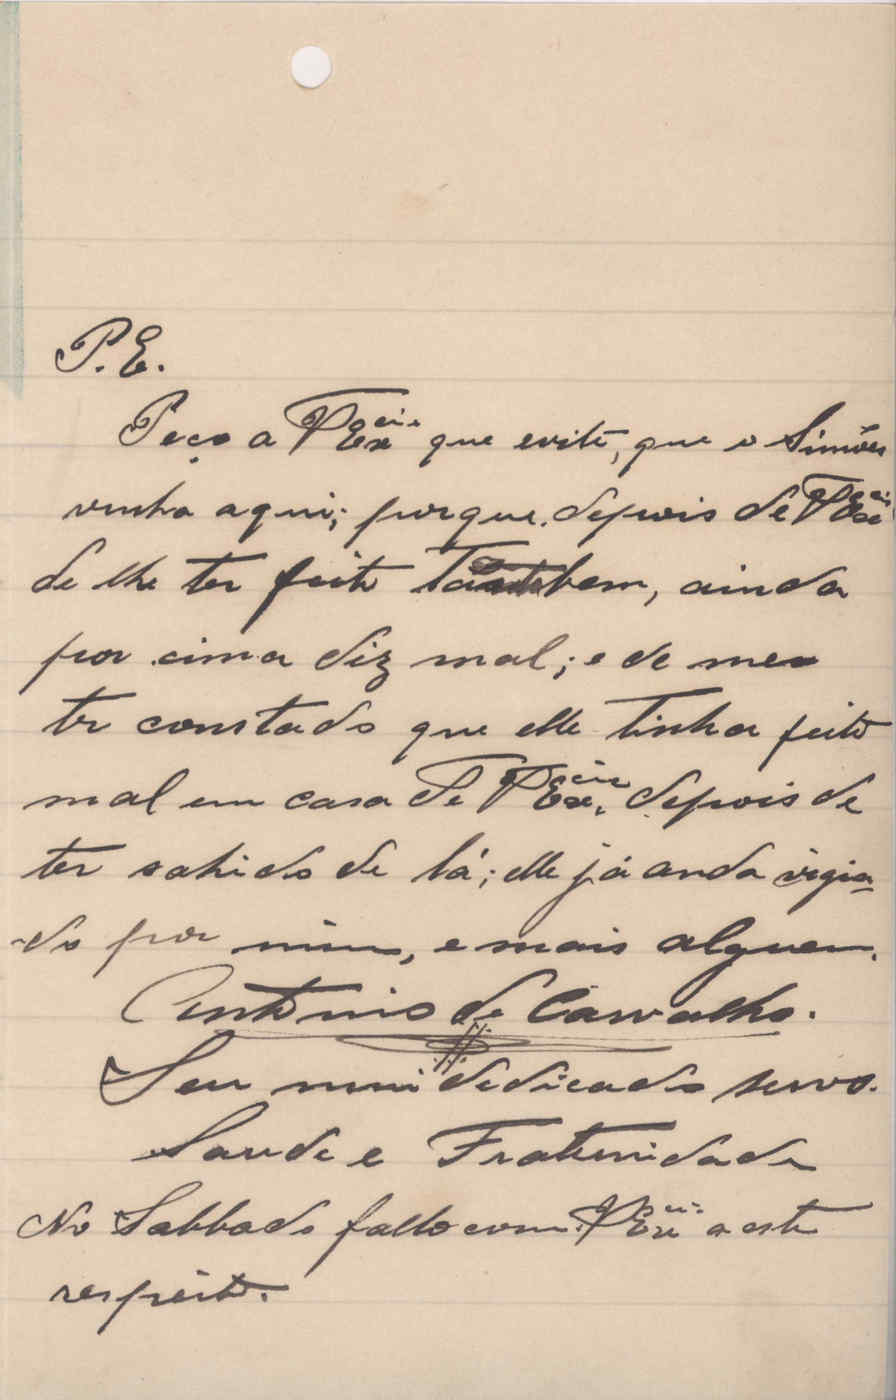 P.E.
Peço a V Excia que evite, que o Simões
venha aqui; porque depois de V Excia
de lhe ter feito bem, ainda
por cima diz mal; e de me
ter constado que elle tinha feito
mal em casa de V Excia, depois de
ter sahido de lá; elle já anda vigia-
-do por mim, e mais alguem.
Antonio de Carvalho.
Seu mui dedicado servo.
Saude e Fraternidade
No Sabbado fallo com V Excia a este
respeito.